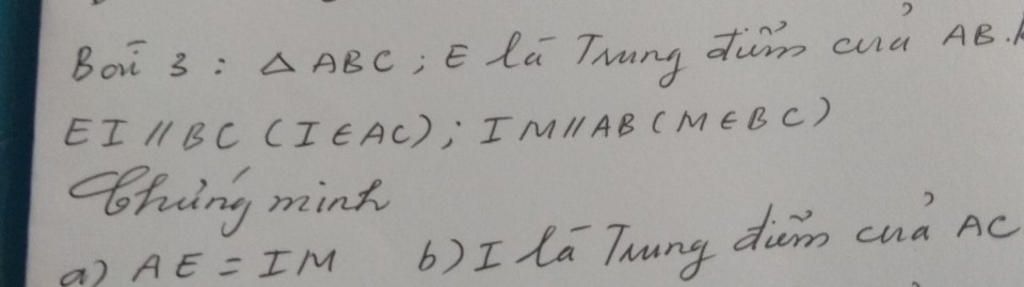 Bài 3 : △ ABC ; E là Trung điểm của AB.
EI // BC ( I ∈ AC ) ; IM // AB ( M ∈ BC )
Chứng minh
a) AE = IM b) I là Trung điểm của AC